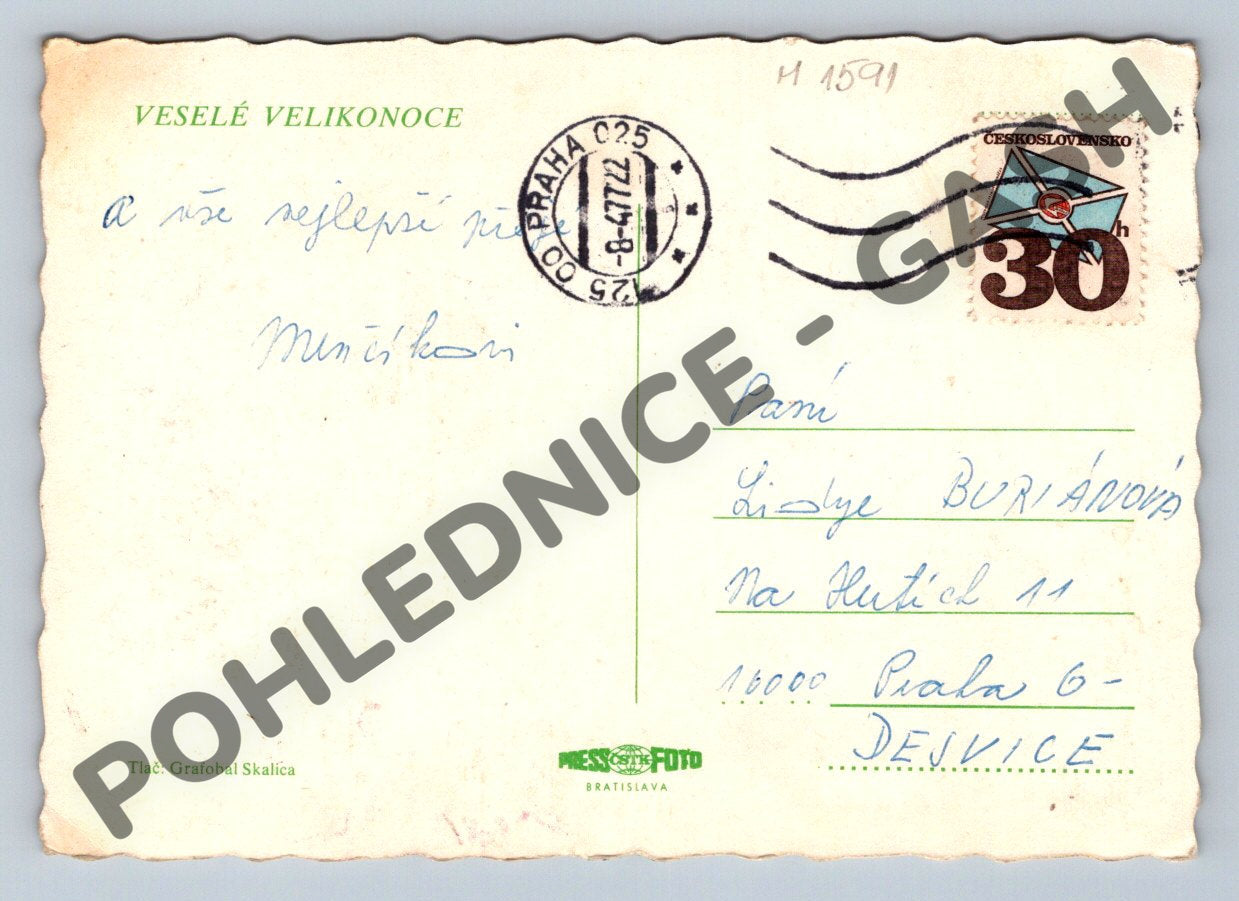 VESELÉ VELIKONOCE
a vše nejlepší přeje
Menčíkovi
Tlač: Grafobal Skalica
PRESS ČSTK FOTO
BRATISLAVA
M 1591
PRAHA 025
-8-47722
025 00
ČESKOSLOVENSKO
30h
Paní
Lidye BURIÁNOVÁ
Na Hutích 11
16000 Praha 6-
DEJVICE
POHLEDNICE - GASH